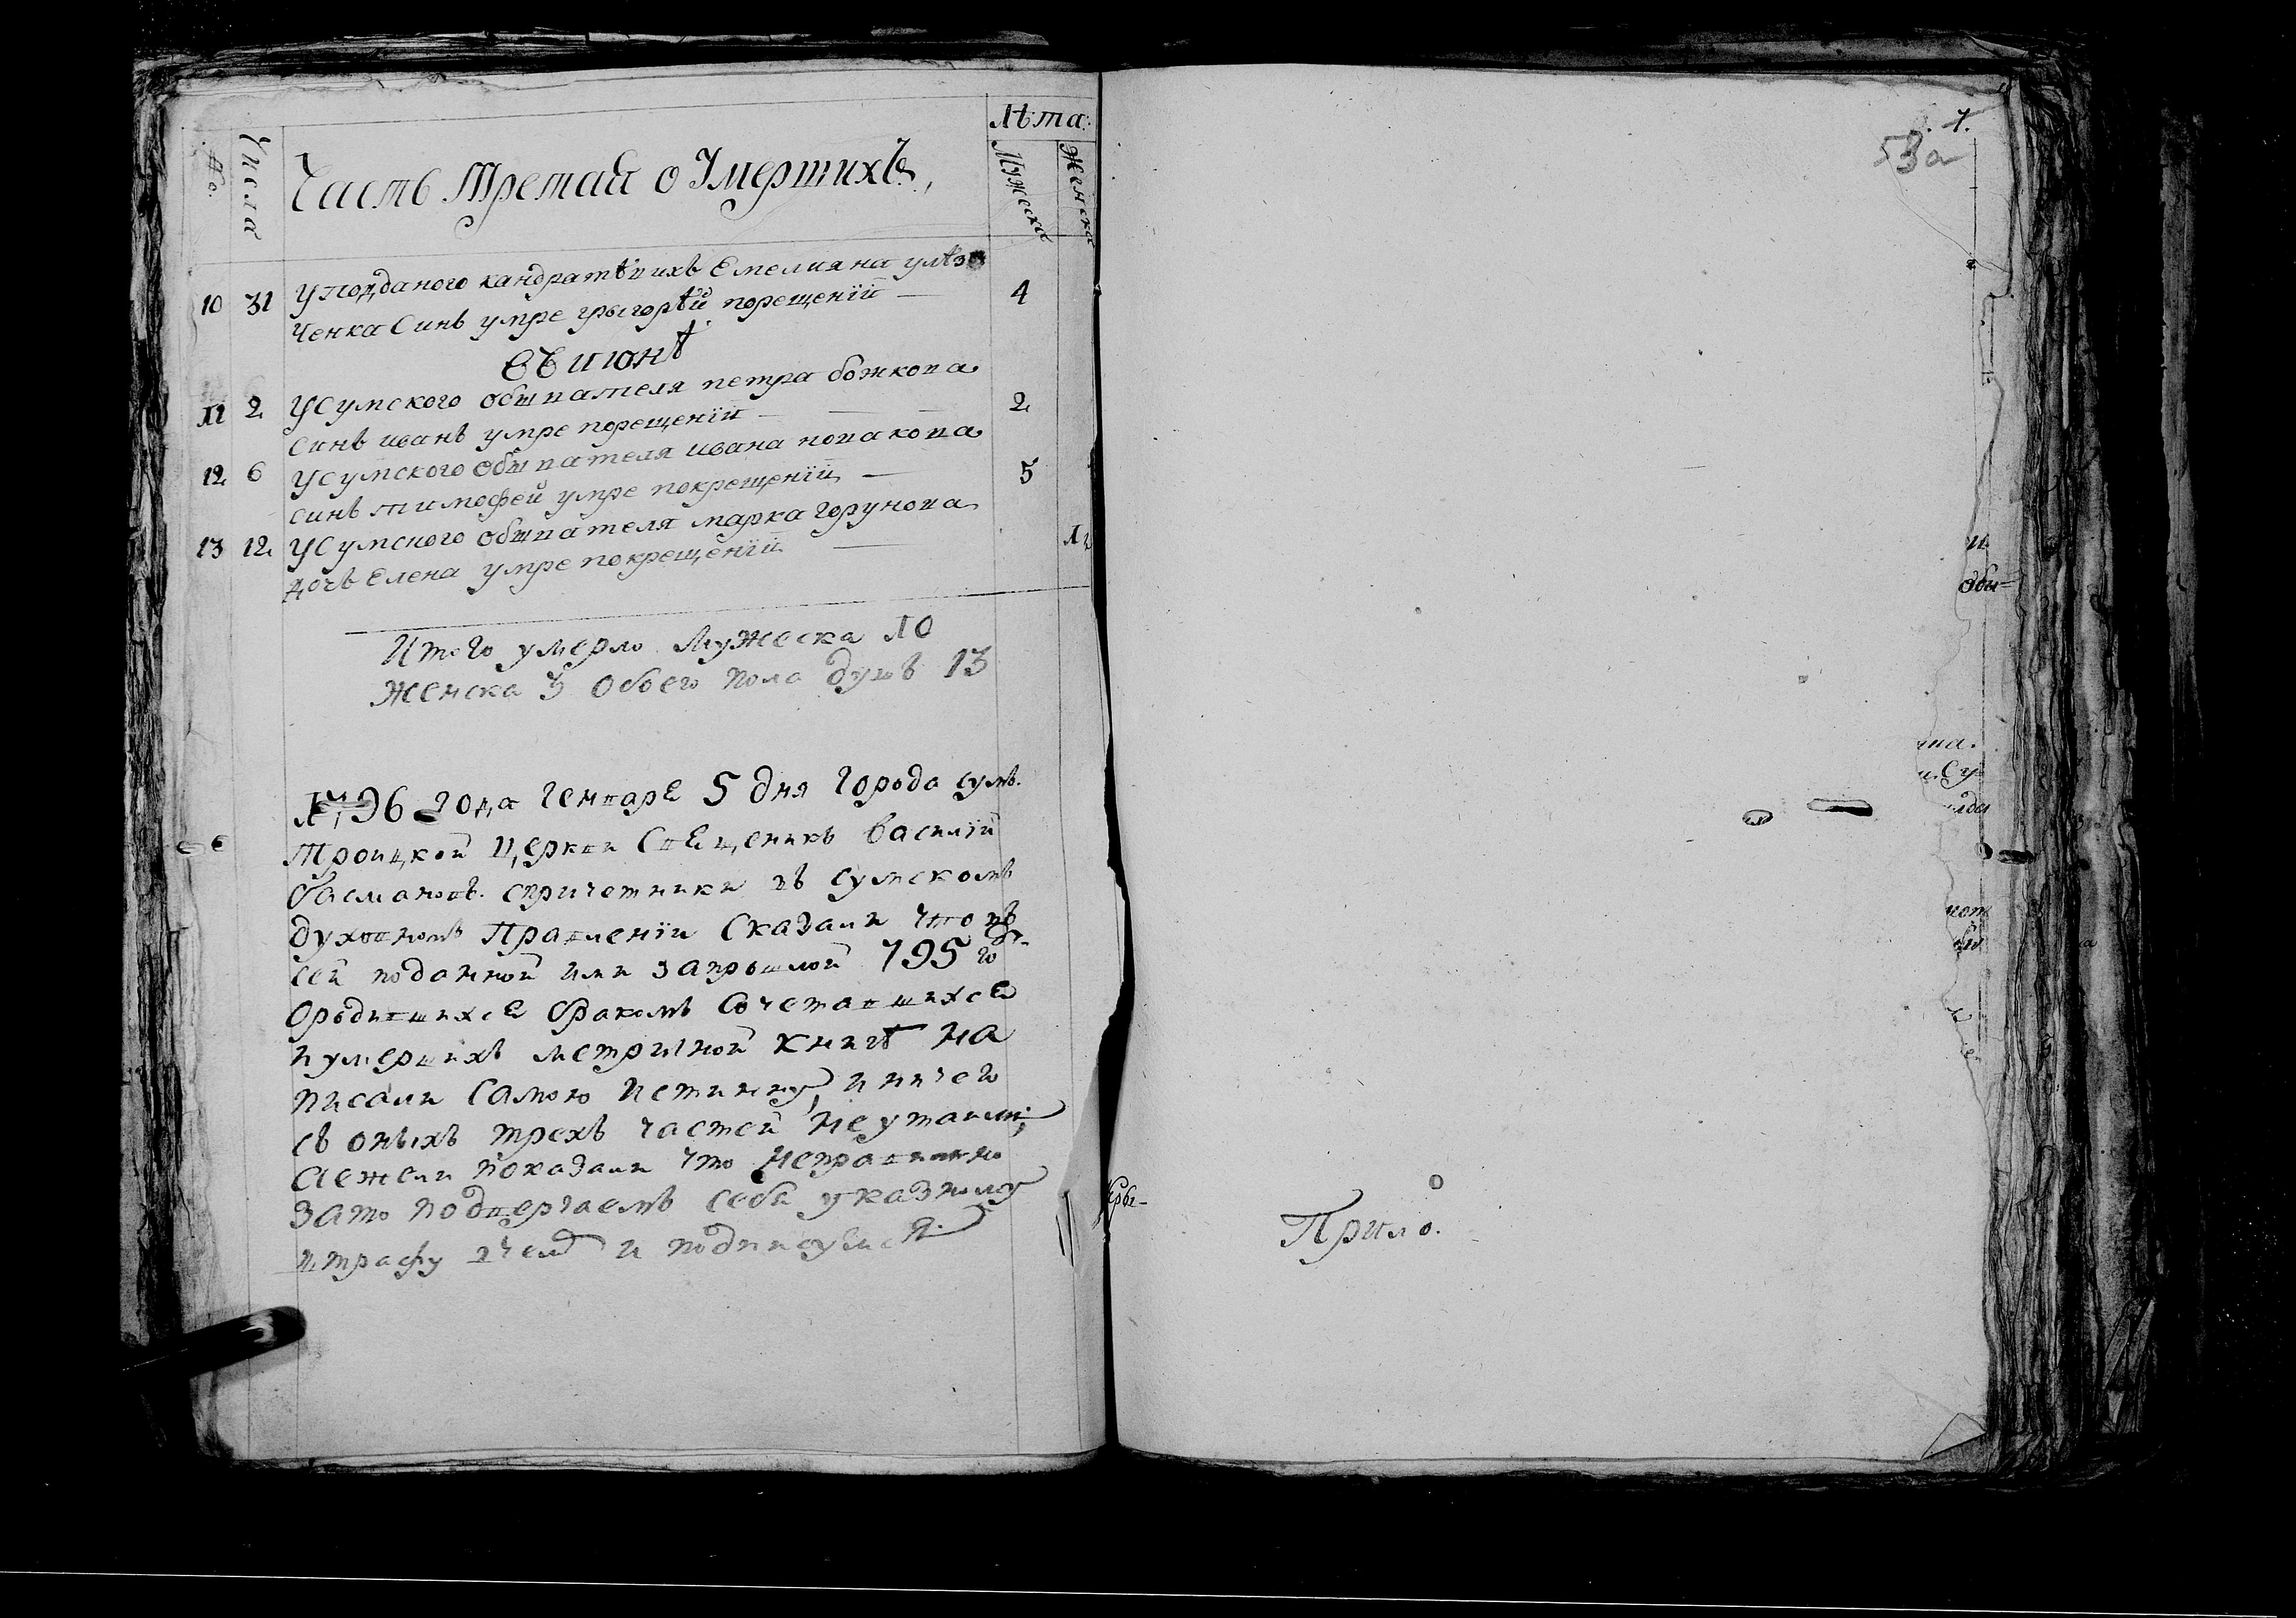 №. Числа Часть Третая о Умершихъ, Лѣта: Мужеска Женска
10 31 У подданого кандратѣвихъ Емелияна
ченка Синъ умре григорѣй покрещенїи — 4
въ июнѣ
11 2 У Сумского обшвателя петра божкова
синъ иванъ умре покрещенїи — 2
12 6 У Сумского обшвателя ивана новакова
синъ тимофей умре покрещенїи — 5
13 12 У Сумского обшвателя марка горунова
дочъ Елена умре покрещенїи —
Итого умерло Мужеска 10
Женска 3 Обоего пола душъ 13
1796 года Генваре 5 дня Города сумъ
Троицкой церкви Свещеникъ василїй
Басмановъ спричетники въ сумскомъ
духовномъ Правленїи Сказали что въ
сей поданной ими запрошлой 795 го
Ородившихсе браkомъ Сочетавшихсе
иумершихъ метричной книгѣ на
писали Самою истинну, иничего
съ онихъ трехъ частей неутаили;
Аежели показали что неправилно
зато подвергаемъ себя указному
штрафу вчемъ и подписуемся
53а
7.
обы-
Прило.